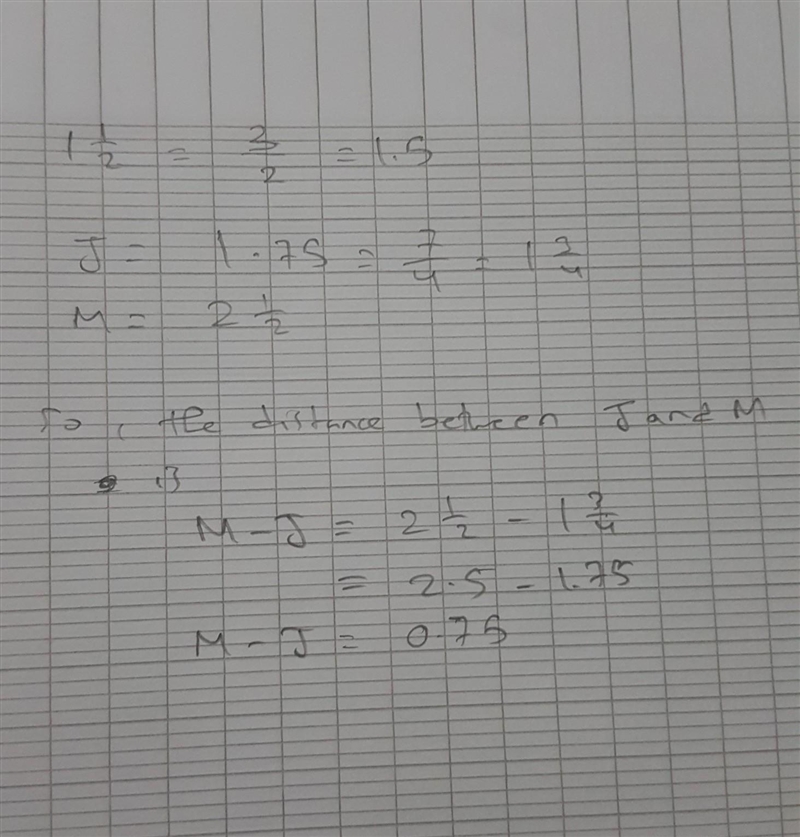 1 1/2 = 3/2 = 1.5
J = 1.75 = 7/4 = 1 3/4
M = 2 1/2
So, the distance between J and M
is
M - J = 2 1/2 - 1 3/4
= 2.5 - 1.75
M - J = 0.75